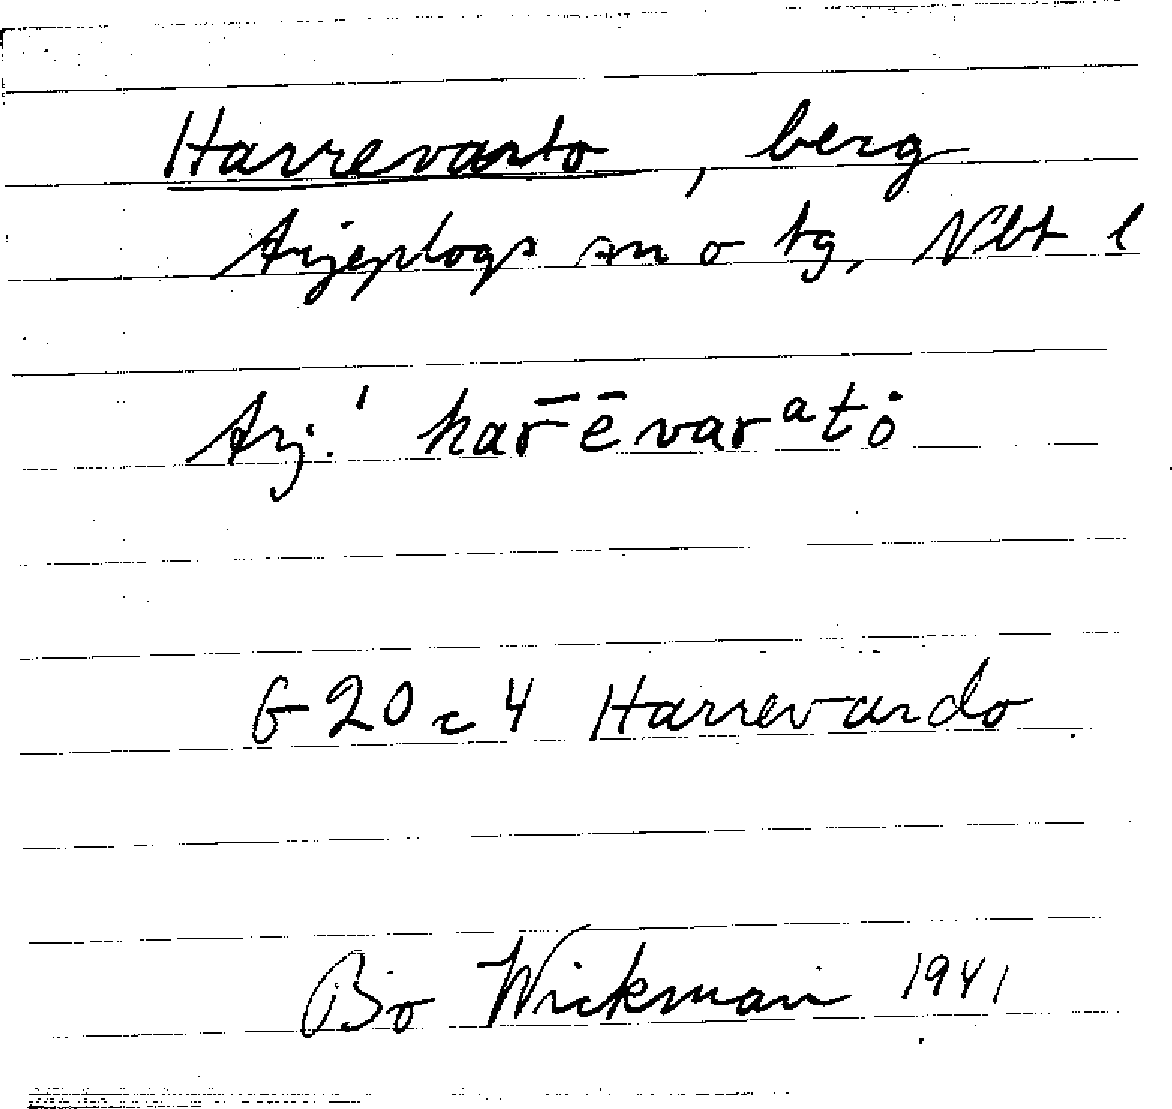 Harrevarto, berg
Arjeplogs sn o tg, Nbt l
Arj.' har̄ēvarᵃtȯ
G 20 c 4 Harrevardo
Bo Wickman 1941